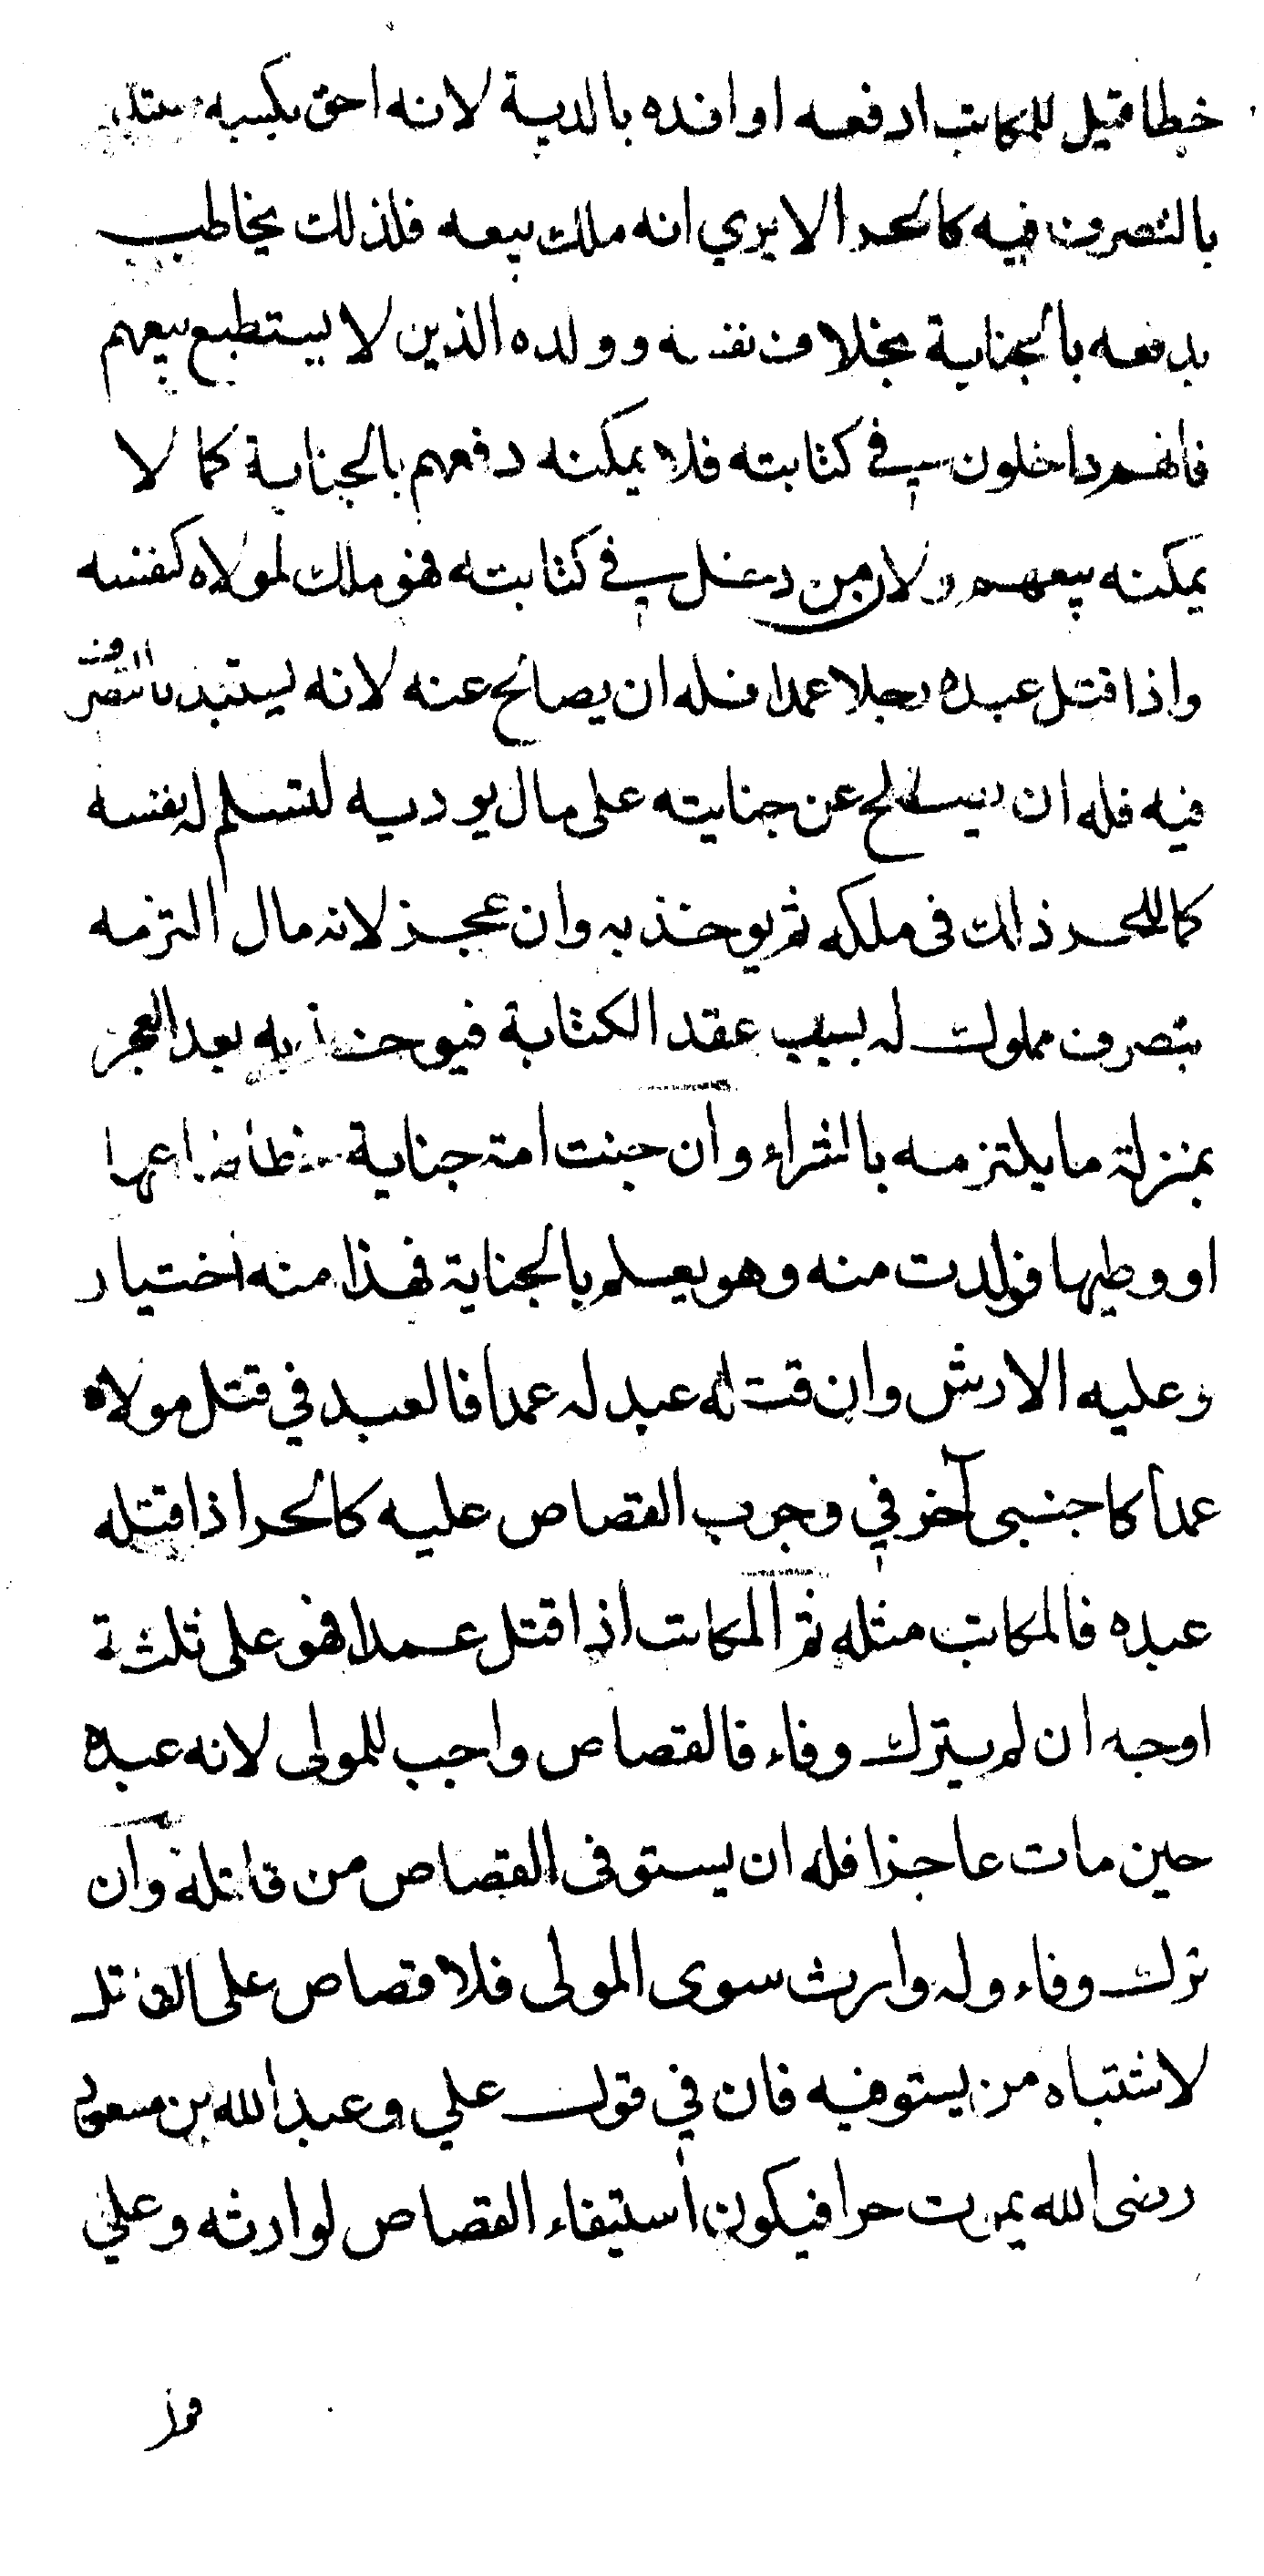 خطا قيل للمكاتب ادفعه او افده بالدية لانه احق بكسبه يستبد
بالتصرف فيه كالحر الا يري انه ملك بيعه فلذلك يخاطب
بدفعه بالجناية بخلاف نفسه وولده الذين لا يستطيع بيعهم
فانهم داخلون في كتابته فلا يمكنه دفعهم بالجناية كما لا
يمكنه بيعهم ولان من دخل في كتابته فهو ملك لمولاه كنفسه
واذا قتل عبده رجلا عمدا فله ان يصالح عنه لانه يستبد بالتصرف
فيه فله ان يصالح عن جنايته على مال يوديه لتسلم له نفسه
كما للحر ذالك في ملكه ثم يوخذ به وان عجز لانه مال التزمه
بتصرف مملوك له بسبب عقد الكتابة فيوخذ به بعد العجز
بمنزلة ما يلتزمه بالشراء وان جنت امة جناية خطا فباعها
او وطيها فولدت منه وهو يعلم بالجناية فهذا منه اختيار
وعليه الارش وان قتله عبد له عمدا فالعبد في قتل مولاه
عمدا كاجنبى آخر في وجوب القصاص عليه كالحر اذا قتله
عبده فالمكاتب مثله ثم المكاتب اذا قتل عمدا فهو على ثلثة
اوجه ان لم يترك وفاء فالقصاص واجب للمولى لانه عبده
حين مات عاجزا فله ان يستوفى القصاص من قاتله وان
ترك وفاء وله وارث سوى المولى فلا قصاص على القاتل
لاشتباه من يستوفيه فان في قول علي وعبد الله بن مسعود
رضى الله يموت حرا فيكون استيفاء القصاص لوارثه وعلي
قول